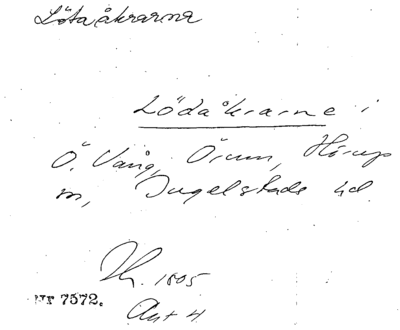 Lötaåkrarna
Lödaåkrarne i
Ö. Vång, Örum, Hörup
m, Ingelstads hd
1805
Nr 7572.
Akt 4